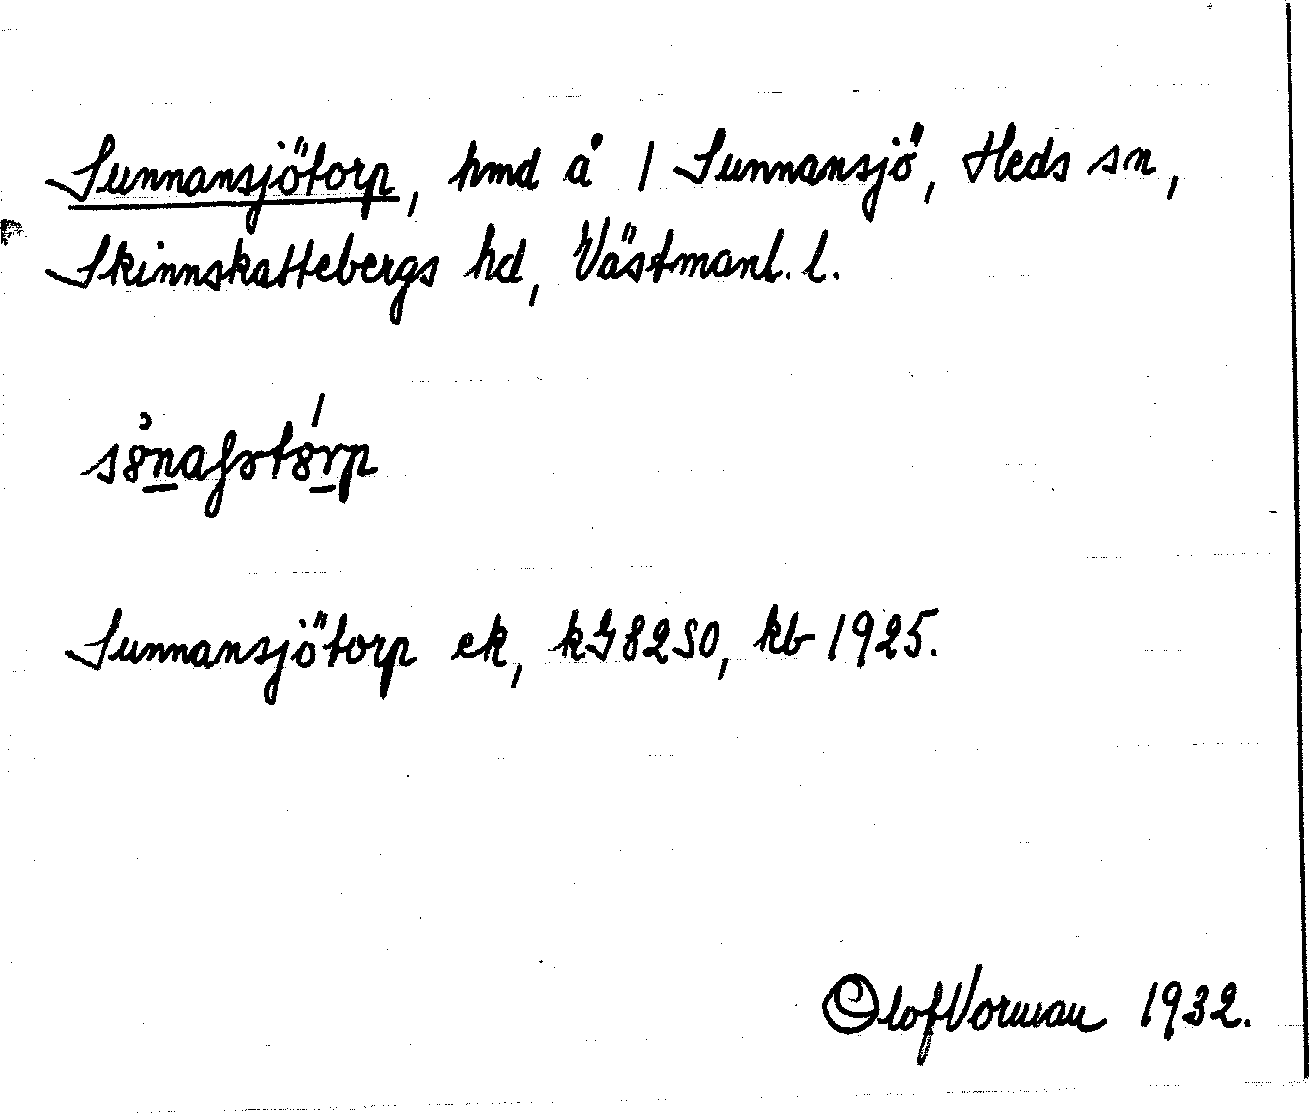 Sunnansjötorp, hmd å 1 Sunnansjö, Heds sn,
Skinnskattebergs hd, Västmanl. l.
Sunnansjötorp ek, kG 8250, kb 1925.
Olof Vorman 1932.